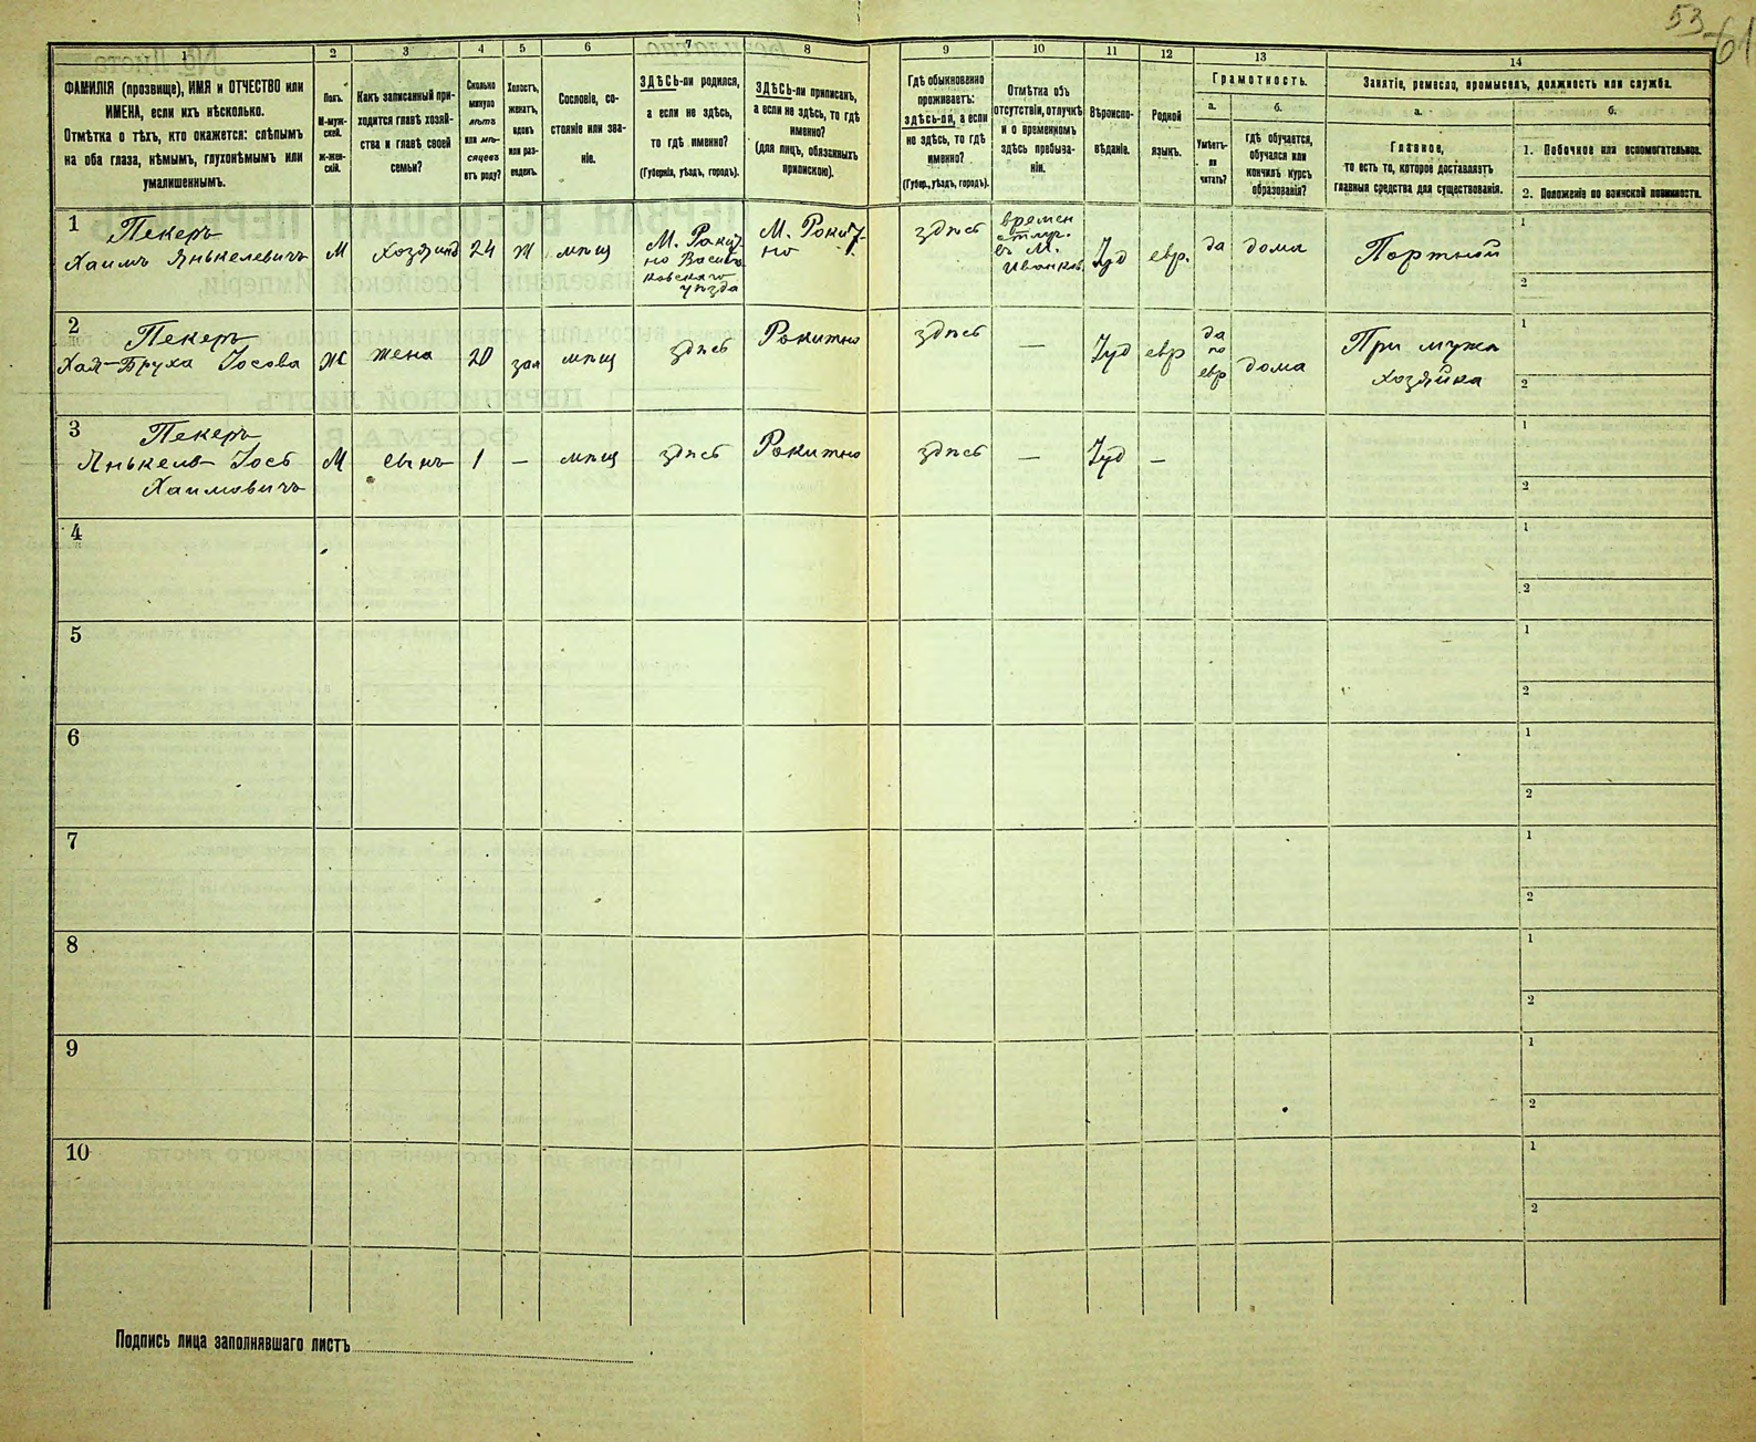 53
61
1
2
3
4
5
6
7
8
9
10
11
12
13
14
ФАМИЛІЯ (прозвище), ИМЯ и ОТЧЕСТВО или
ИМЕНА, если ихъ нѣсколько.
Отмѣтка о тѣхъ, кто окажется: слѣпымъ
на оба глаза, нѣмымъ, глухонѣмымъ или
умалишеннымъ.
Полъ.
М-муж-
ской.
Ж-жен-
скій.
Какъ записанный при-
ходится главѣ хозяй-
ства и главѣ своей
семьи?
Сколько
минуло
лѣтъ
или мѣ-
сяцевъ
отъ роду?
Холостъ,
женатъ,
вдовъ
или раз-
веденъ.
Сословіе, со-
стояніе или зва-
ніе.
ЗДѢСЬ-ли родился,
а если не здѣсь,
то гдѣ именно?
(Губернія, уѣздъ, городъ).
ЗДѢСЬ-ли приписанъ,
а если не здѣсь, то гдѣ
именно?
(для лицъ, обязанныхъ
припискою).
Гдѣ обыкновенно
проживаетъ:
здѣсь-ли, а если
не здѣсь, то гдѣ
именно?
(Губер., уѣздъ, городъ).
Отмѣтка объ
отсутствіи, отлучкѣ
и о временномъ
здѣсь пребыва-
ніи.
Вѣроиспо-
вѣданіе.
Родной
языкъ.
Грамотность.
а.
Умѣетъ-
ли
читать?
б.
Гдѣ обучается,
обучался или
кончилъ курсъ
образованія?
Занятіе, ремесло, промыселъ, должность или служба.
а.
Главное,
то есть то, которое доставляетъ
главныя средства для существованія.
б.
1. Побочное или вспомогательное.
2. Положеніе по воинской повинности.
1
Пекеръ
Хаимъ Янькелевичъ
М
хозяинъ
24
ж
мѣщ
М. Ракит-
но Василь
ковскаго
уѣзда
М. Рокит-
но
здѣсь
времен
отлуч.
въ М.
Иванков.
Іуд
евр.
да
дома
Портной
1
2
2
Пекеръ
Хая-Бруха Іосова
Ж
жена
20
зам
мѣщ
здѣсь
Рокитно
здѣсь
—
Іуд
евр
да
по
евр
дома
При мужѣ
хозяйка
1
2
3
Пекеръ
Янькель-Іось
Хаимовичъ
М
сынъ
1
—
мѣщ
здѣсь
Рокитно
здѣсь
—
Іуд
—
1
2
4
1
2
5
1
2
6
1
2
7
1
2
8
1
2
9
1
2
10
1
2
Подпись лица заполнявшаго листъ